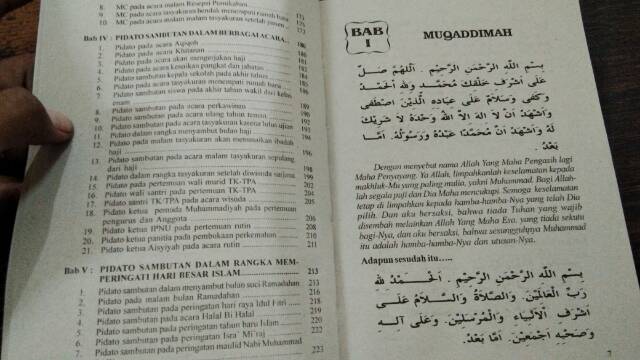 8. MC pada acara malam Resepsi Pernikahan
9. MC pada acara tasyakuran hendak menempati rumah baru 173
10. MC pada acara malam tasyakuran setelah panen 175
Bab IV : PIDATO SAMBUTAN DALAM BERBAGAI ACARA... 180
1. Pidato pada acara Aqiqoh
2. Pidato pada acara Khitanan
3. Pidato pada acara akan mengerjakan haji
4. Pidato pada acara kenaikan pangkat dan jabatan
5. Pidato sambutan kepada sekolah pada akhir tahun
6. Pidato pada tasyakuran menempati rumah baru
7. Pidato sambutan siswa pada akhir tahun wakil dari kelas
enam
8. Pidato sambutan pada acara perkawinan 189
9. Pidato sambutan pada acara ulang tahun teman 192
10. Pidato sambutan pada acara tasyakuran karena lulus ujian 193
11. Pidato dalam rangka menyambut bulan haji 195
12. Pidato pada malam tasyakuran akan menunaikan ibadah
haji 196
13. Pidato sambutan pada acara malam tasyakuran sepulang
dari haji 198
14. Pidato dalam rangka tasyakuran setelah diwisuda sarjana 199
15. Pidato pada pertemuan wali murid TK-TPA 202
16. Pidato wali santri pada pertemuan TK-TPA 204
17. Pidato santri TK/TPA pada acara wisuda 205
18. Pidato ketua pemuda Muhammadiyah pada pertemuan
pengurus dan Anggota 206
19. Pidato ketua IPNU pada pertemuan rutin 208
20. Pidato ketua panitia pada pembukaan perkemahan 210
21. Pidato ketua Aisyiyah pada acara rutin 211
Bab V : PIDATO SAMBUTAN DALAM RANGKA MEM-
PERINGATI HARI BESAR ISLAM 213
1. Pidato sambutan dalam menyambut bulan suci Ramadahan
2. Pidato pada malam bulan Ramadahan 216
3. Pidato sambutan pada peringatan hari raya Idul Fitri 218
4. Pidato sambutan pada acara Halal Bi Halal 219
5. Pidato sambutan pada peringatan tahun baru Islam 220
6. Pidato sambutan pada peringatan Isra' Mi'raj 222
7. Pidato sambutan pada peringatan maulid Nabi Muhammad
223
BAB
I
MUQADDIMAH
بِسْمِ اللَّهِ الرَّحْمَنِ الرَّحِيْمِ . اَللَّهُمَّ صَلِّ
عَلَى أَشْرَفِ خَلْقِكَ مُحَمَّدٍ وَلِلَّهِ الْحَمْدُ
وَكَفَى وَسَلَامٌ عَلَى عِبَادِهِ الَّذِيْنَ اصْطَفَى
وَاَشْهَدُ اَنْ لَا اِلَهَ اِلَّا اللَّهُ وَحْدَهُ لَا شَرِيْكَ
لَهُ وَاَشْهَدُ اَنَّ مُحَمَّدًا عَبْدُهُ وَرَسُوْلُهُ. اَمَّا
بَعْدُ.
Dengan menyebut nama Allah Yang Maha Pengasih lagi
Maha Penyayang. Ya Allah, limpahkanlah keselamatan kepada
makhluk-Mu yang paling mulia, yakni Muhammad. Bagi Allah-
lah segala puji dan Dia Maha mencukupi. Semoga keselamatan
tetap di limpahkan kepada hamba-hamba-Nya yang telah Dia
pilih. Dan aku bersaksi, bahwa tiada Tuhan yang wajib
disembah melainkan Allah Yang Maha Esa. yang tiada sekutu
bagi-Nya, dan aku bersaksi, bahwa sesungguhnya Muhammad
itu adalah hamba-hamba-Nya dan utusan-Nya.
Adapun sesudah itu.....
بِسْمِ اللَّهِ الرَّحْمَنِ الرَّحِيْمِ . اَلْحَمْدُ لِلَّهِ
رَبِّ الْعَالَمِيْنَ. وَالصَّلَاةُ وَالسَّلَامُ عَلَى
أَشْرَفِ الْاَنْبِيَاءِ وَالْمُرْسَلِيْنَ. وَعَلَى آلِهِ
وَصَحْبِهِ أَجْمَعِيْنَ. اَمَّا بَعْدُ.
7